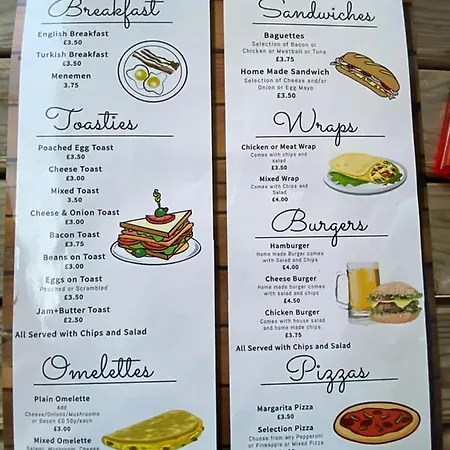 Breakfast
English Breakfast
£3.50
Turkish Breakfast
£3.50
Menemen
3.75
Toasties
Poached Egg Toast
£3.50
Cheese Toast
£3.00
Mixed Toast
3.50
Cheese & Onion Toast
£3.00
Bacon Toast
£3.75
Beans on Toast
£3.00
Eggs on Toast
Poached or Scrambled
£3.50
Jam+Butter Toast
£2.50
All Served with Chips and Salad
Omelettes
Plain Omelette
Add
Cheese/Onions/Mushrooms
or Bacon £0.50p/each
£3.00
Mixed Omelette
Salami, Mushroom, Cheese
Sandwiches
Baguettes
Selection of Bacon or
Chicken or Meatball or Tuna
£3.75
Home Made Sandwich
Selection of Cheese and/or
Onion or Egg Mayo
£3.50
Wraps
Chicken or Meat Wrap
Comes with chips and
salad.
£3.50
Mixed Wrap
Comes with Chips and
Salad.
£4.00
Burgers
Hamburger
Home made Burger comes
with Salad and Chips
£4.00
Cheese Burger
Home made burger comes
with salad and chips
£4.50
Chicken Burger
Comes with house salad
and home made chips.
£3.75
All Served with Chips and Salad
Pizzas
Margarita Pizza
£3.50
Selection Pizza
Choose from any Pepperoni
or Pineapple or Mixed Pizza